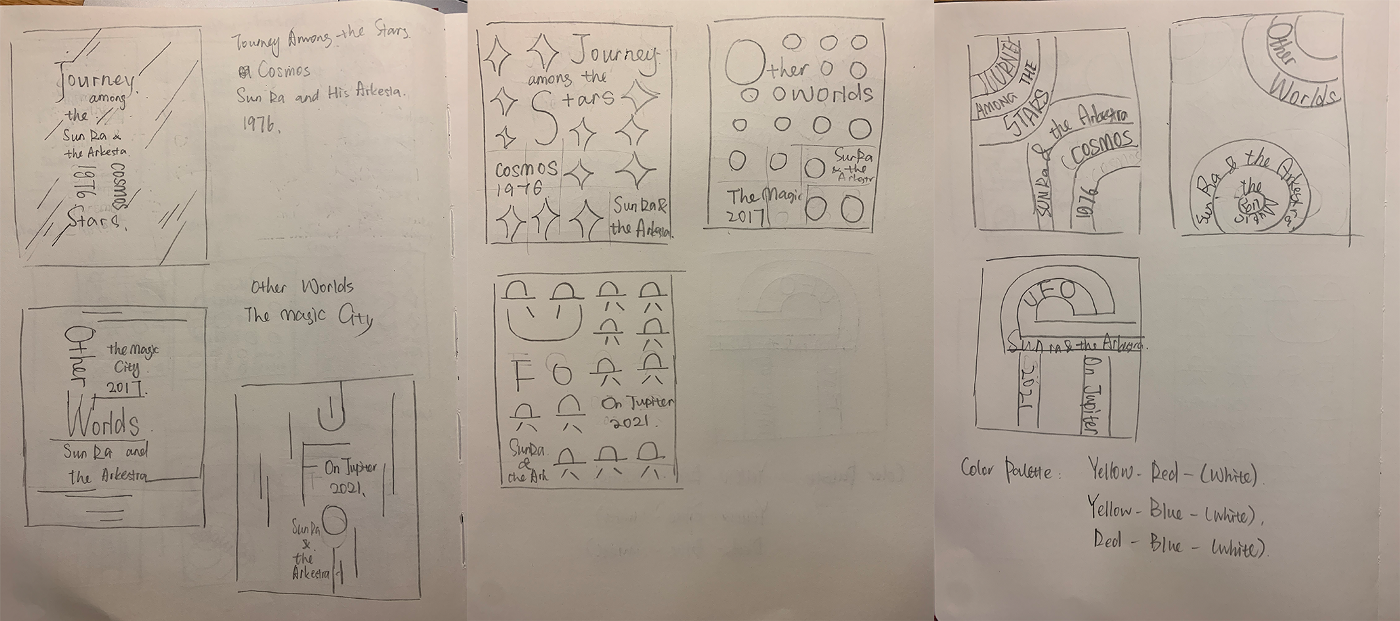 Journey
among
the
Sun Ra &
the Arkesta
cosmos
1976
Stars.
Journey Among the Stars
Cosmos
Sun Ra and His Arkesta.
1976.
Other Worlds
The Magic City
Other
the Magic
City
2017.
Worlds
Sun Ra and
the Arkestra
U
F
On Jupiter
2021.
Sun Ra
&
the
Arkestra
Journey
among the
Stars
cosmos
1976
Sun Ra &
the Arkestra.
Other
Worlds
Sun Ra
& the
Arkestr
The Magic
2017
U
F O
On Jupiter
2021.
Sun Ra
&
the Ark
JOURNEY
AMONG THE
STARS
SUN RA & the Arkestra
COSMOS
1976
Other
Worlds
Sun Ra & the Arkestra
the
UFO
Sun Ra & the Arkestra.
2021
On Jupiter
Color Palette: Yellow - Red - (White).
Yellow - Blue - (White).
Red - Blue - (White).